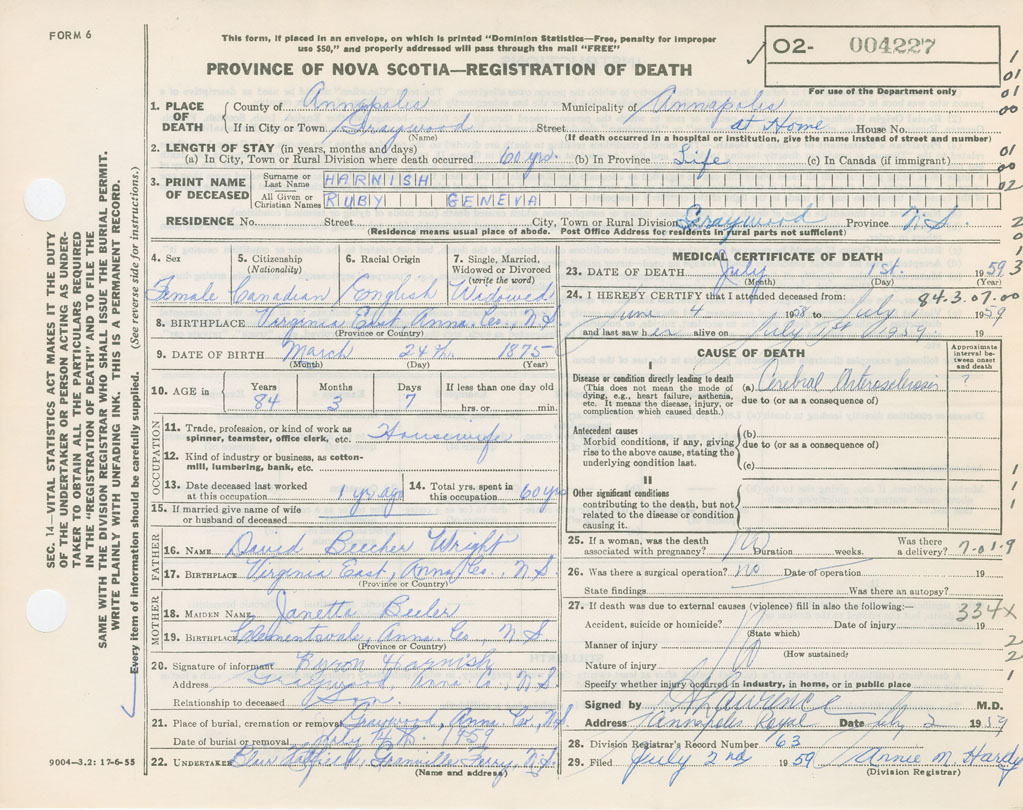 FORM 6
This form, if placed in an envelope, on which is printed "Dominion Statistics—Free, penalty for improper
use $50," and properly addressed will pass through the mail "FREE"
PROVINCE OF NOVA SCOTIA—REGISTRATION OF DEATH
02- 004227
For use of the Department only
1. PLACE OF DEATH
County of Annapolis Municipality of Annapolis
If in City or Town Graywood Street at Home House No.
(Name) (If death occurred in a hospital or institution, give the name instead of street and number)
2. LENGTH OF STAY (in years, months and days)
(a) In City, Town or Rural Division where death occurred 60 yrs. (b) In Province Life (c) In Canada (if immigrant)
3. PRINT NAME OF DECEASED
Surname or Last Name HARNISH
All Given or Christian Names RUBY GENEVA
RESIDENCE No. Street City, Town or Rural Division Graywood Province N.S
(Residence means usual place of abode. Post Office Address for residents in rural parts not sufficient)
4. Sex 5. Citizenship (Nationality) 6. Racial Origin 7. Single, Married, Widowed or Divorced (write the word)
Female Canadian English Widowed
8. BIRTHPLACE Virginia East, Anna. Co., N.S
(Province or Country)
9. DATE OF BIRTH March 24th. 1875
(Month) (Day) (Year)
10. AGE in Years Months Days If less than one day old
84 3 7 hrs. or min.
OCCUPATION
11. Trade, profession, or kind of work as
spinner, teamster, office clerk, etc. Housewife
12. Kind of industry or business, as cotton-
mill, lumbering, bank, etc.
13. Date deceased last worked at this occupation 1 yr ago 14. Total yrs. spent in this occupation 60 yrs
15. If married give name of wife
or husband of deceased
FATHER
16. NAME David Beecher Wright
17. BIRTHPLACE Virginia East, Anna Co., N.S
(Province or Country)
MOTHER
18. MAIDEN NAME Janetta Beeler
19. BIRTHPLACE Clementsvale, Anna. Co, N.S
(Province or Country)
20. Signature of informant Byron Harnish
Address Graywood, Anna Co., N.S.
Relationship to deceased Son
21. Place of burial, cremation or removal Graywood, Anna Co., N.S.
Date of burial or removal July 1959
22. UNDERTAKER Blair Granville Ferry, N.S
(Name and address)
9004—3.2: 17-6-55
MEDICAL CERTIFICATE OF DEATH
23. DATE OF DEATH July 1st. 1959
(Month) (Day) (Year)
24. I HEREBY CERTIFY that I attended deceased from: 84.3.07.00
June 4 1958 to July 1 1959
and last saw her alive on July 1st 1959. 19
CAUSE OF DEATH
Approximate interval between onset and death
I
Disease or condition directly leading to death
(This does not mean the mode of
dying, e.g., heart failure, asthenia,
etc. It means the disease, injury, or
complication which caused death.)
(a) Cerebral Arterosclerosis ?
due to (or as a consequence of)
Antecedent causes
Morbid conditions, if any, giving
rise to the above cause, stating the
underlying condition last.
(b)
due to (or as a consequence of)
(c)
II
Other significant conditions
contributing to the death, but not
related to the disease or condition
causing it.
25. If a woman, was the death associated with pregnancy? No Duration weeks. Was there a delivery? 7-01-9
26. Was there a surgical operation? No Date of operation 19
State findings Was there an autopsy?
27. If death was due to external causes (violence) fill in also the following:— 334X
Accident, suicide or homicide? Date of injury 19
(State which)
Manner of injury No
(How sustained)
Nature of injury
Specify whether injury occurred in industry, in home, or in public place
Signed by Lawrence M.D.
Address Annapolis Royal Date July 2 1959
28. Division Registrar's Record Number 63
29. Filed July 2nd 1959 Annie M. Hardy
(Division Registrar)
1
01
01
00
01
00
02
2
0
1
3
1
1
1
2
2
1
SEC. 14—VITAL STATISTICS ACT MAKES IT THE DUTY
OF THE UNDERTAKER OR PERSON ACTING AS UNDER-
TAKER TO OBTAIN ALL THE PARTICULARS REQUIRED
IN THE "REGISTRATION OF DEATH" AND TO FILE THE
SAME WITH THE DIVISION REGISTRAR WHO SHALL ISSUE THE BURIAL PERMIT.
WRITE PLAINLY WITH UNFADING INK. THIS IS A PERMANENT RECORD.
Every item of information should be carefully supplied. (See reverse side for instructions.)